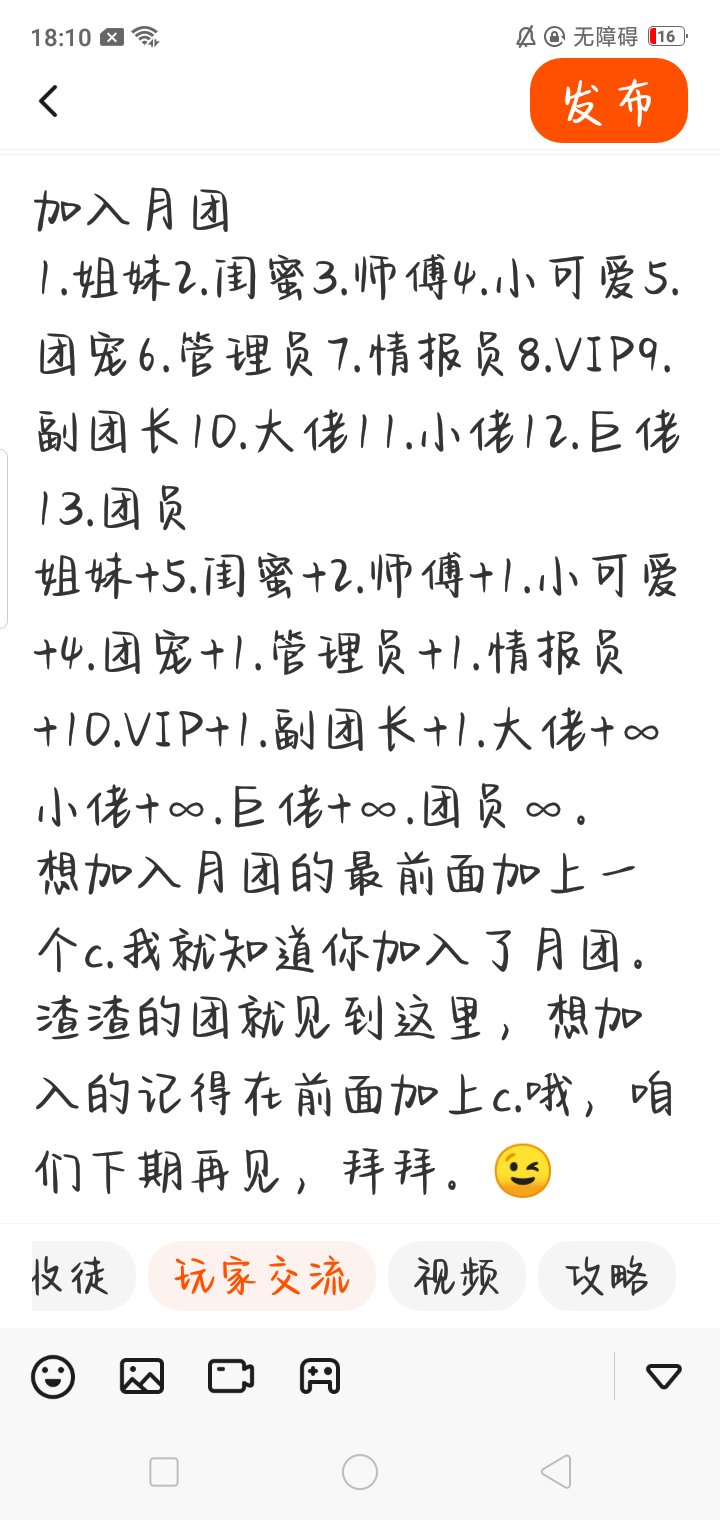 18:10
无障碍
16
发布
加入月团
1.姐妹2.闺蜜3.师傅4.小可爱5.
团宠6.管理员7.情报员8.VIP9.
副团长10.大佬11.小佬12.巨佬
13.团员
姐妹+5.闺蜜+2.师傅+1.小可爱
+4.团宠+1.管理员+1.情报员
+10.VIP+1.副团长+1.大佬+∞
小佬+∞.巨佬+∞.团员∞。
想加入月团的最前面加上一
个c.我就知道你加入了月团。
渣渣的团就见到这里，想加
入的记得在前面加上c.哦，咱
们下期再见，拜拜。😉
收徒
玩家交流
视频
攻略